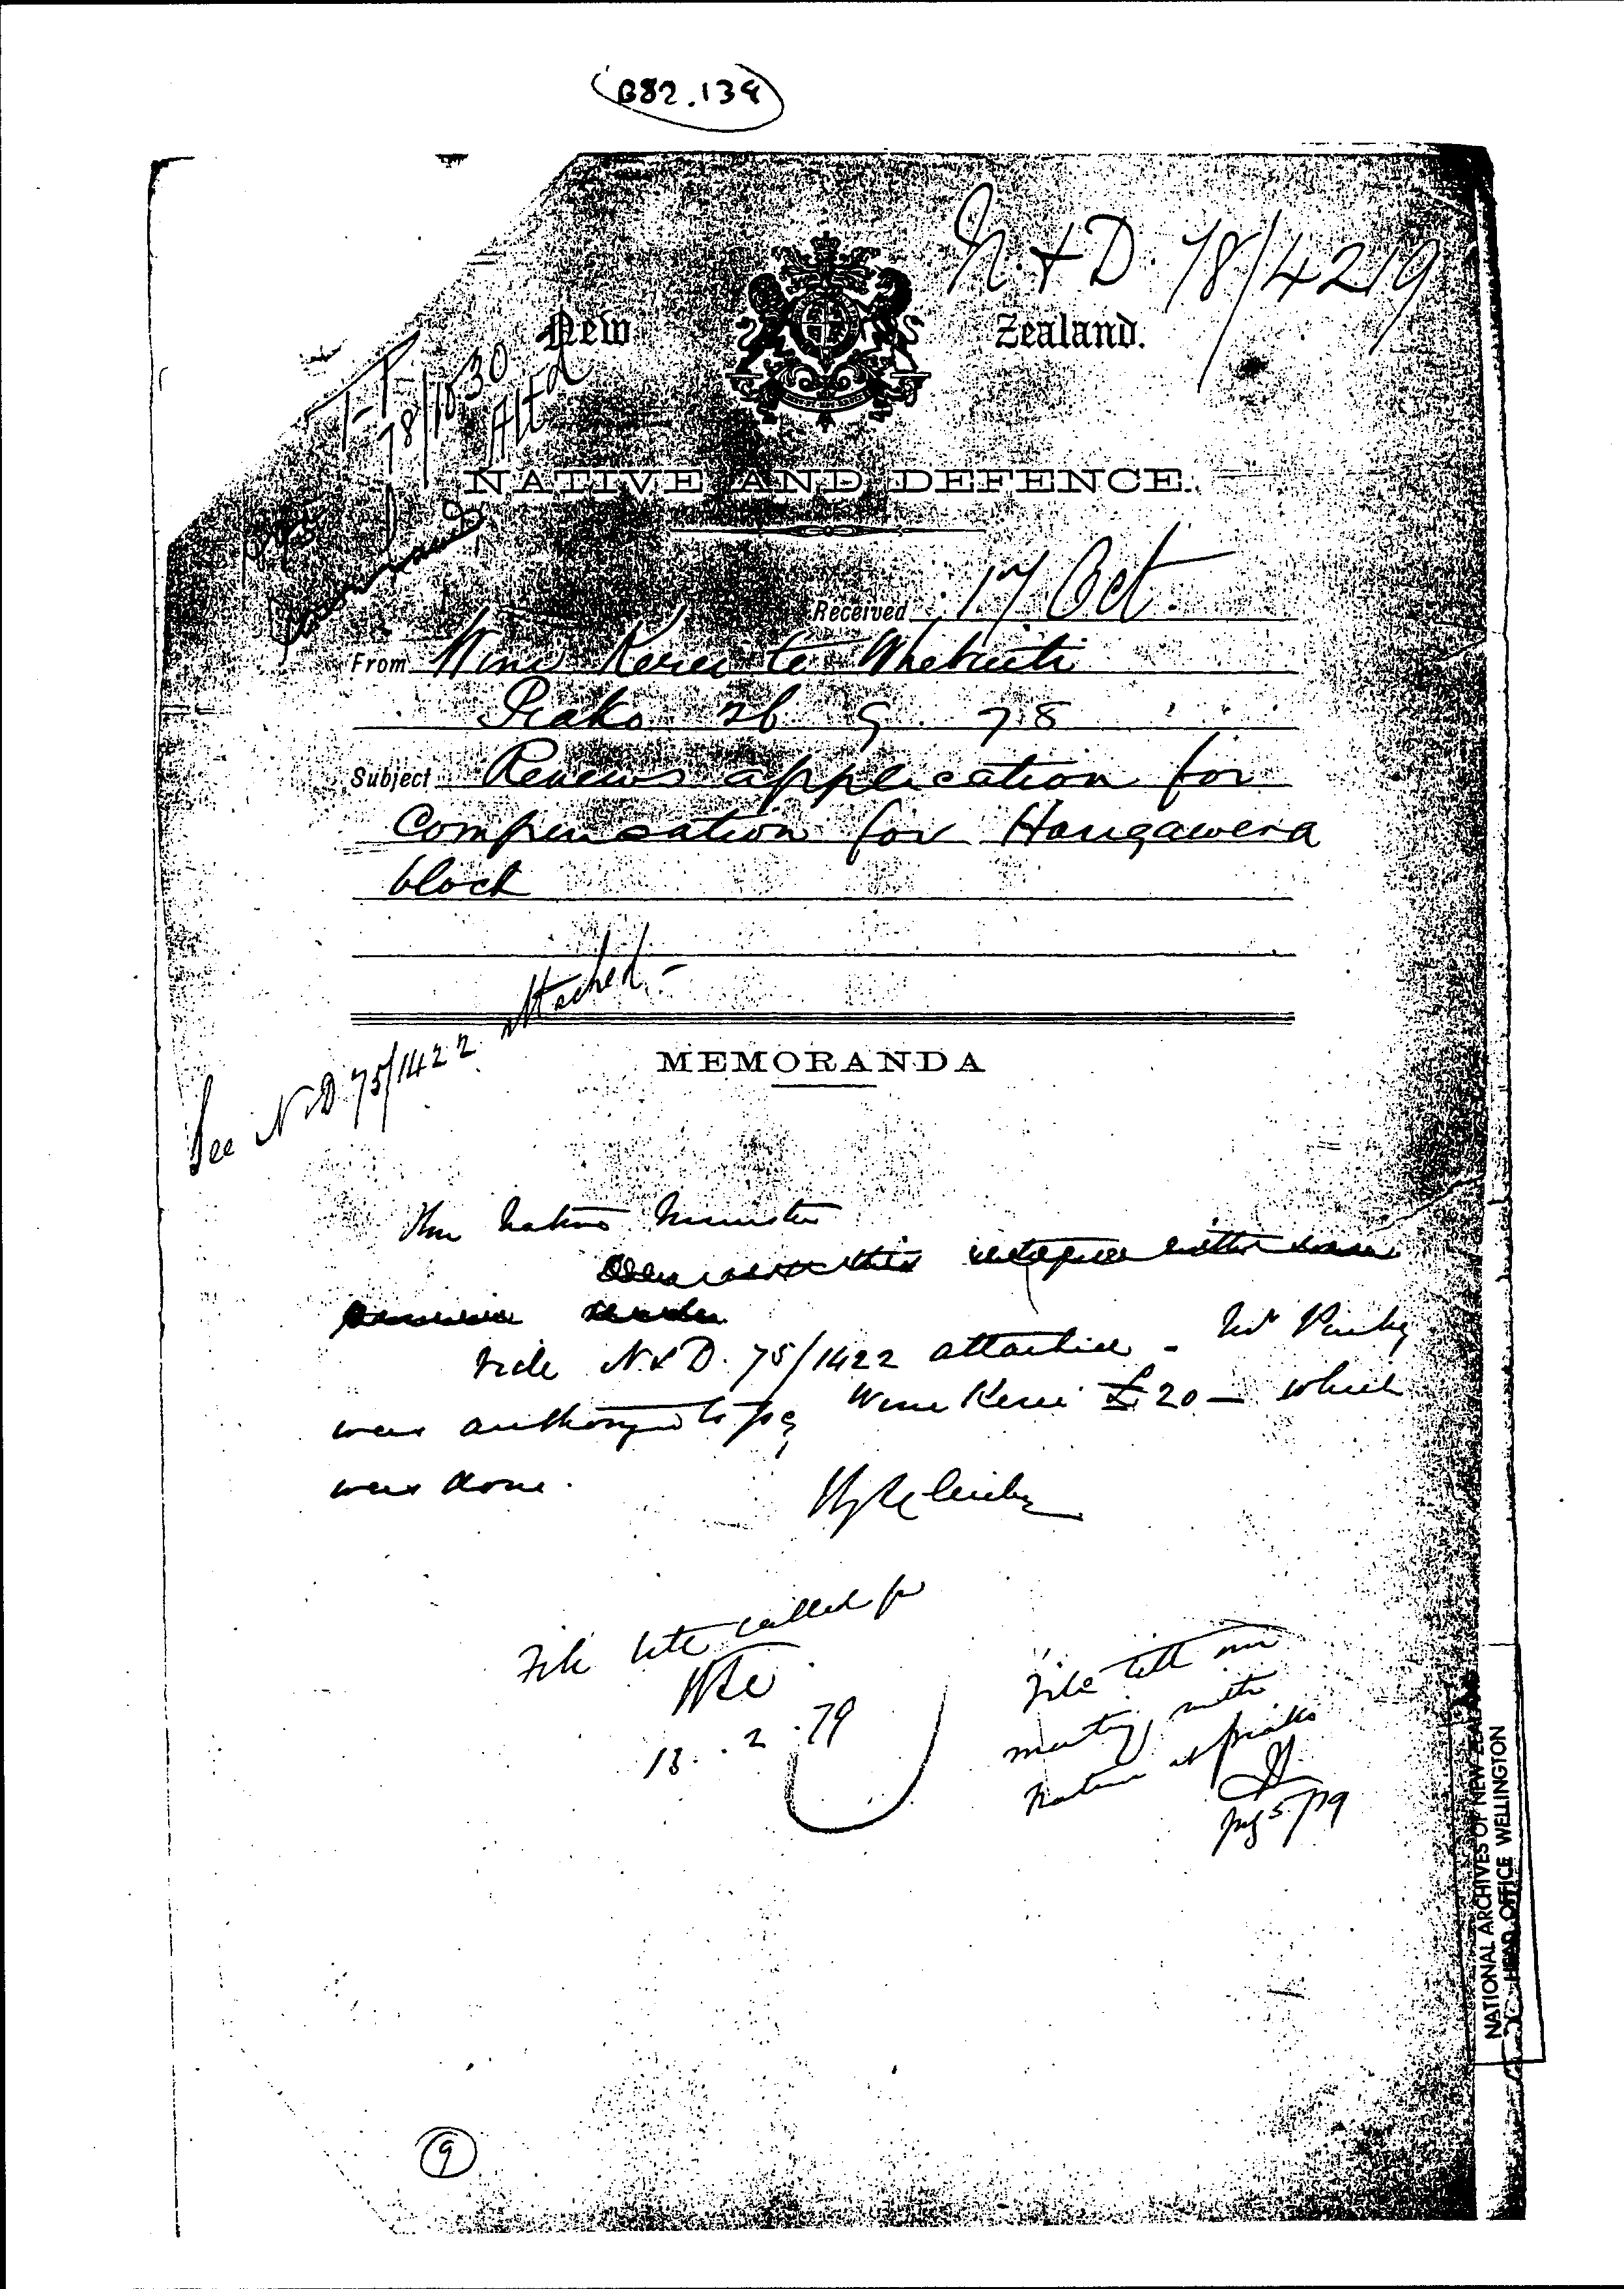 B82.139
N.+D. 78/4219
New Zealand.
78/1830
Att^d
NATIVE AND DEFENCE.
Received 17 Oct.
From Wini Kerei te Whetuiti
Piako 26 9 78
Subject Renews application for
Compensation for Hangawera
block
See N&D 75/1422 attached.-
MEMORANDA
Hon Native Minister
Vide N&D. 75/1422 attached - Mr
was authorized to pay Wini Kerei £20 - which
was done.
File till called for
18. 2. 79
File till our
meeting with
Natives at Piako
5/79
NATIONAL ARCHIVES OF NEW ZEALAND
HEAD OFFICE WELLINGTON
9